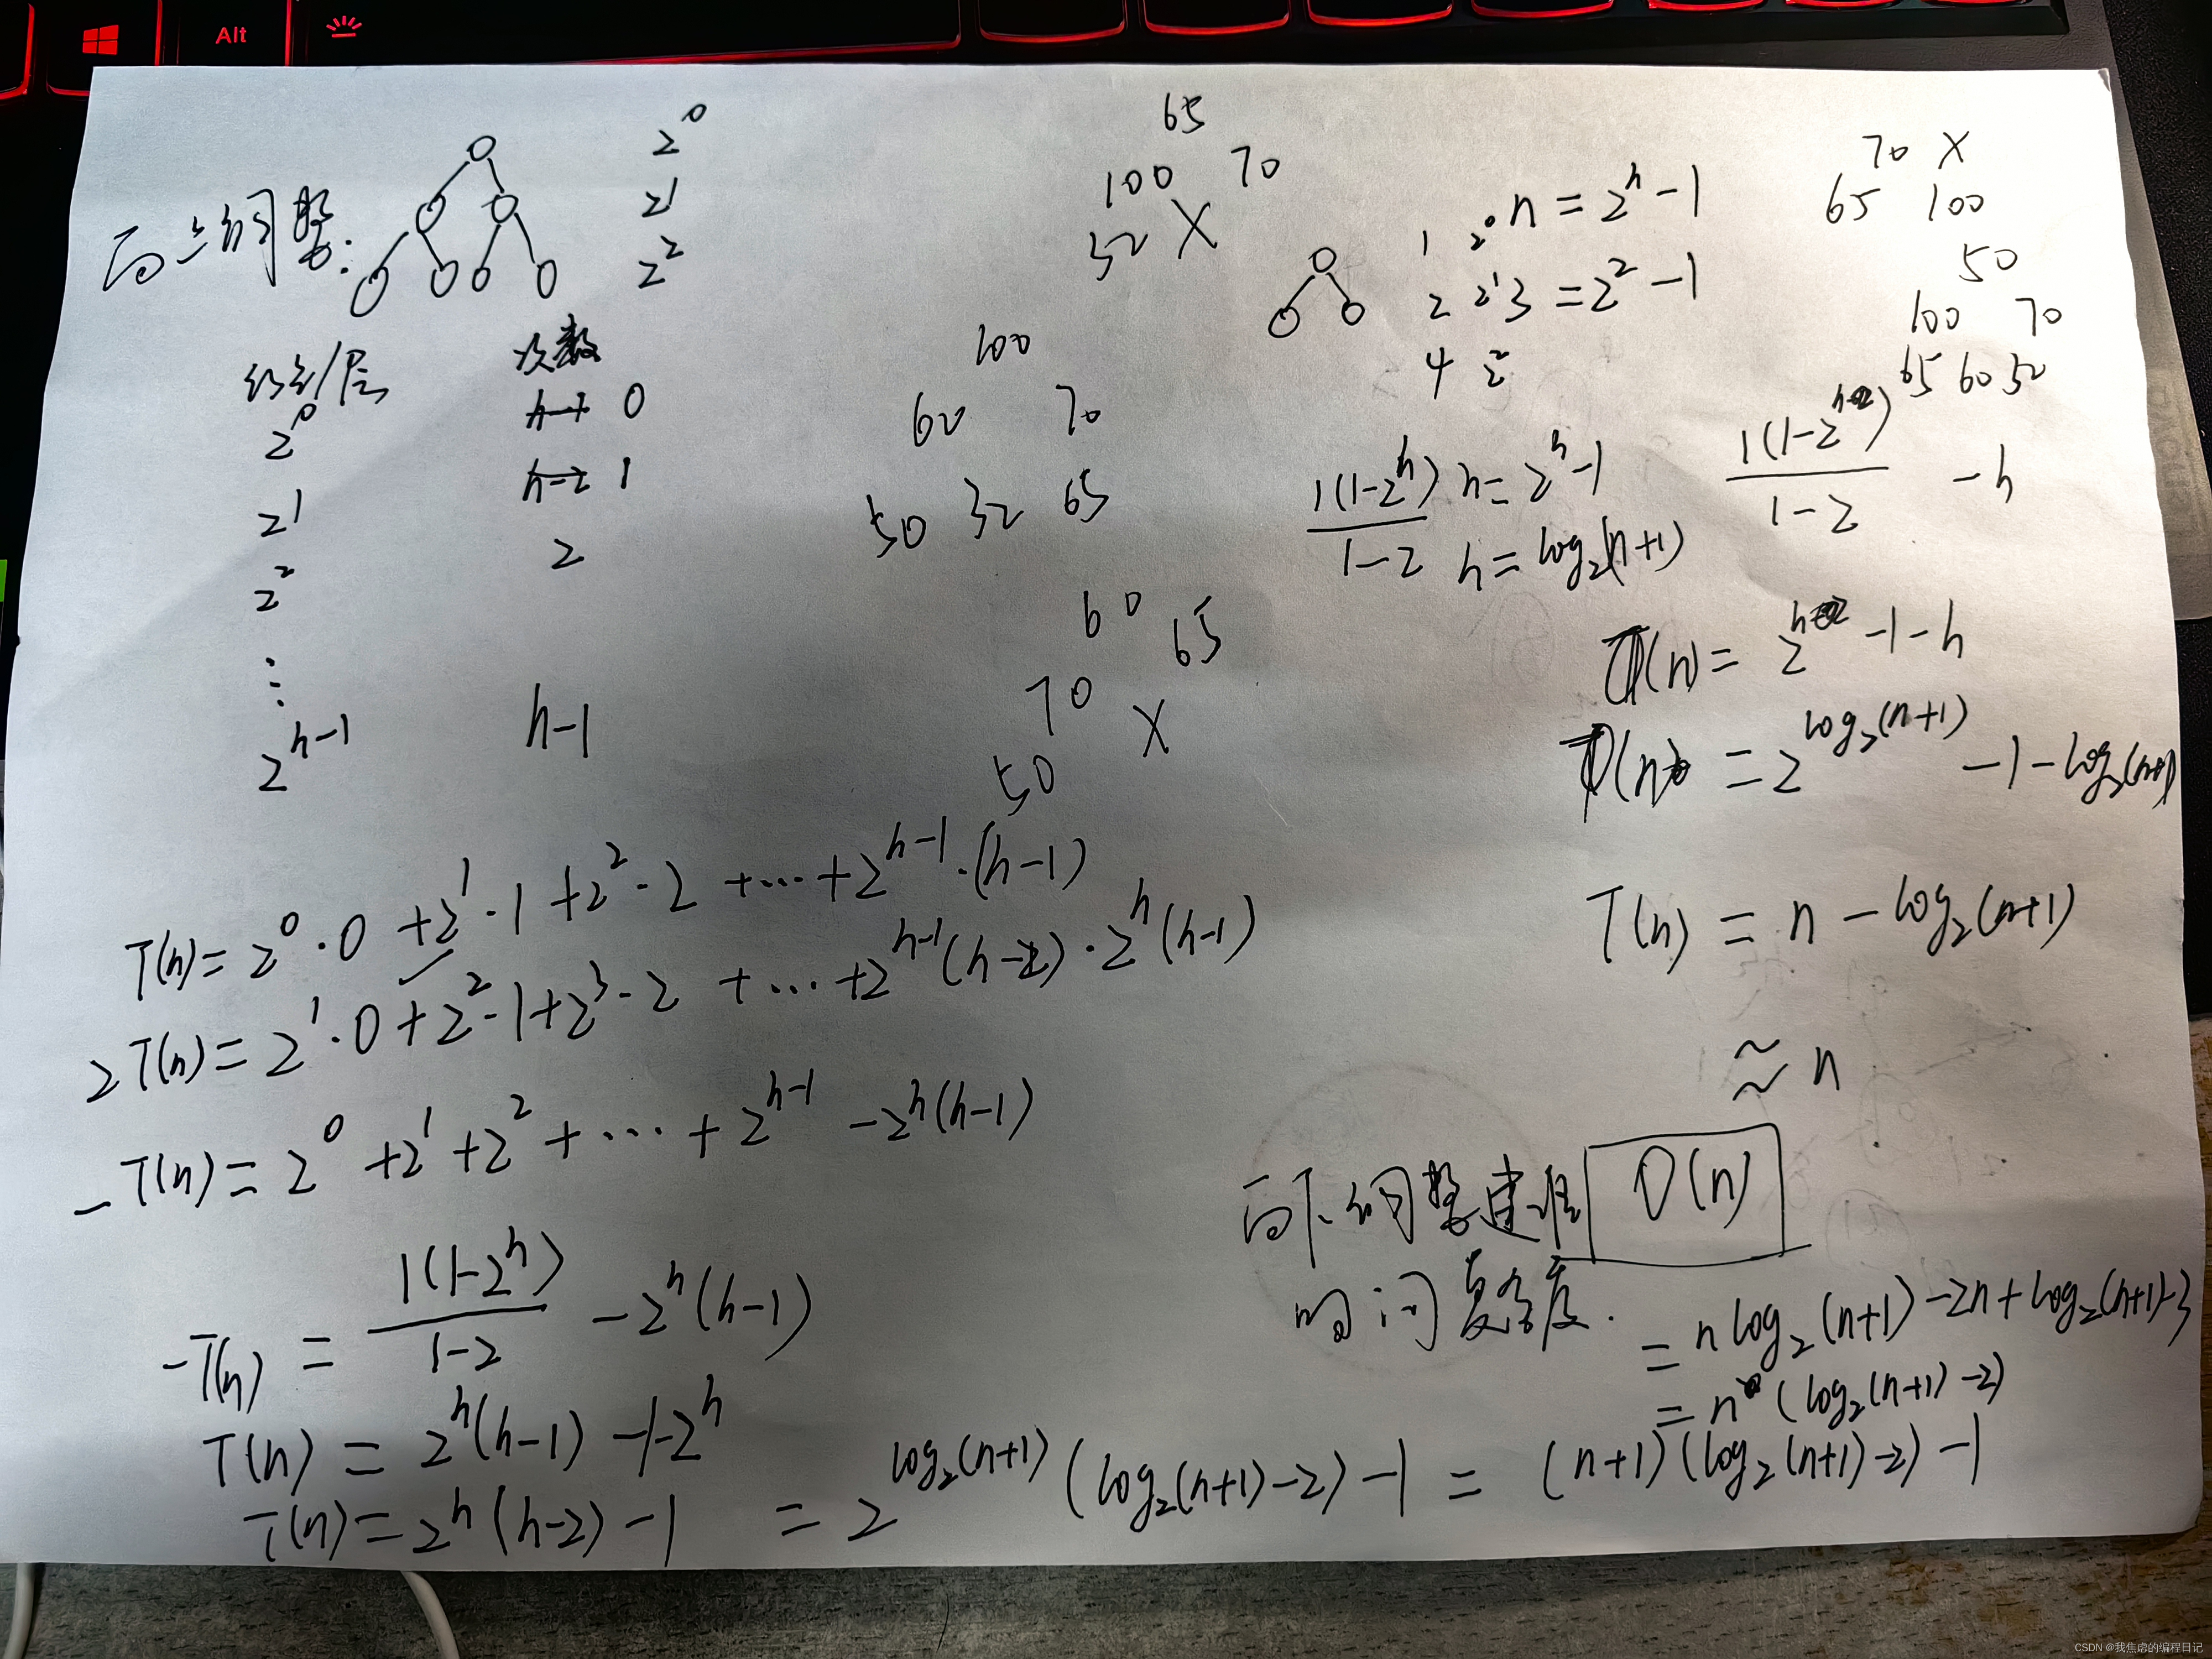 Alt
向上调整:
2^0
2^1
2^2
结点/层 次数
2^0 0
2^1 1
2^2 2
⋮
2^{h-1} h-1
65
100 70
32 X
100
60 70
50 32 65
60
70 65
50 X
1 2^0 n = 2^h - 1
2 2^1 3 = 2^2 - 1
4 2^2
70 X
65 100
50
100 70
65 60 50
1(1-2^h)/(1-2) n = 2^h - 1
h = log₂(n+1)
1(1-2^h)/(1-2) - h
T(n) = 2^h - 1 - h
T(n) = 2^{log₂(n+1)} - 1 - log₂(n+1)
T(n) = n - log₂(n+1)
≈ n
向下调整建堆 O(n)
时间复杂度.
T(n) = 2^0·0 + 2^1·1 + 2^2·2 + ··· + 2^{h-1}·(h-1)
2T(n) = 2^1·0 + 2^2·1 + 2^3·2 + ··· + 2^{h-1}(h-2)·2^h(h-1)
-T(n) = 2^0 + 2^1 + 2^2 + ··· + 2^{h-1} - 2^h(h-1)
-T(n) = 1(1-2^h)/(1-2) - 2^h(h-1)
T(n) = 2^h(h-1) - 1 - 2^h
T(n) = 2^h(h-2) - 1 = 2^{log₂(n+1)} (log₂(n+1) - 2) - 1 = (n+1)(log₂(n+1) - 2) - 1
= n (log₂(n+1) - 2)
= n log₂(n+1) - 2n + log₂(n+1) - 3
CSDN @我焦虑的编程日记